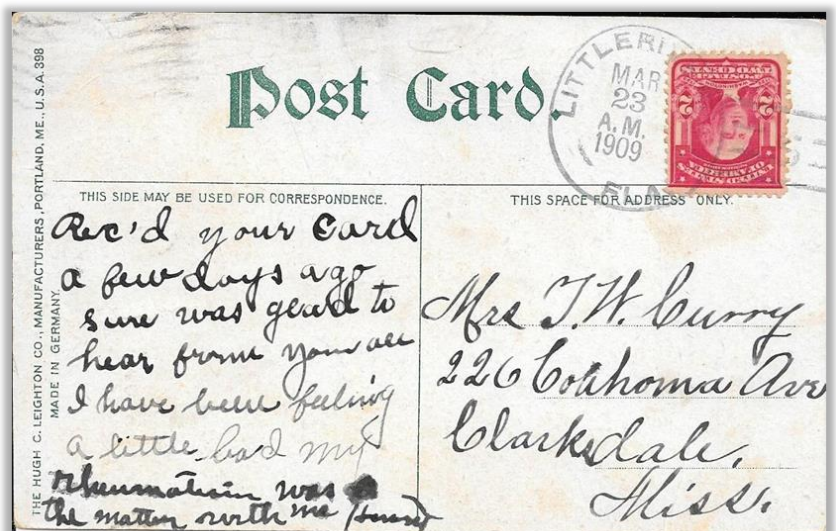 THE HUGH C. LEIGHTON CO., MANUFACTURERS, PORTLAND, ME., U.S.A. 398
MADE IN GERMANY.
Post Card.
LITTLERI
MAR
23
A.M.
1909
FLA
TWO CENTS
2 2
UNITED STATES
OF AMERICA
THIS SIDE MAY BE USED FOR CORRESPONDENCE.
Rec'd your Card
a few days ago
sure was glad to
hear from you all
I have been feeling
a little bad my
rheumatism was
the matter with me
THIS SPACE FOR ADDRESS ONLY.
Mrs T. W. Curry
226 Coahoma Ave
Clarksdale,
Miss.